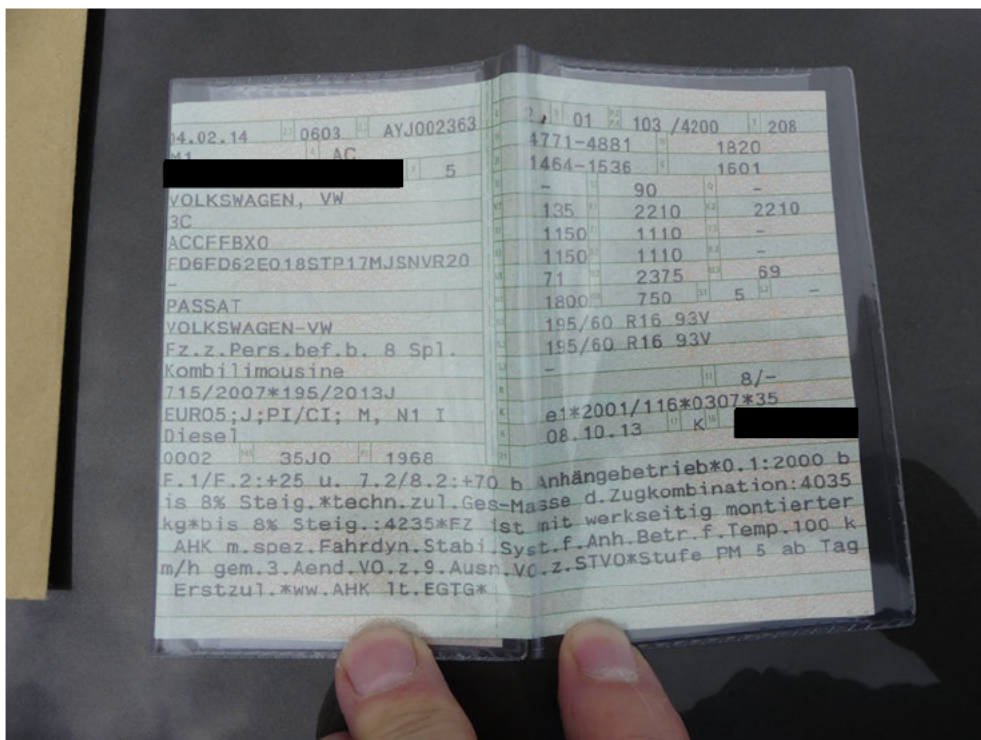 04.02.14 0603 AYJ002363
M1 AC
5
VOLKSWAGEN, VW
3C
ACCFFBX0
FD6FD62E018STP17MJSNVR20
-
PASSAT
VOLKSWAGEN-VW
Fz.z.Pers.bef.b. 8 Spl.
Kombilimousine
715/2007*195/2013J
EURO5;J;PI/CI; M, N1 I
Diesel
0002 35J0 1968
01 103 /4200 208
4771-4881 1820
1464-1536 1601
- 90 -
135 2210 2210
1150 1110 -
1150 1110 -
71 2375 69
1800 750 5 -
195/60 R16 93V
195/60 R16 93V
-
8/-
e1*2001/116*0307*35
08.10.13 K
F.1/F.2:+25 u. 7.2/8.2:+70 b Anhängebetrieb*0.1:2000 b
is 8% Steig.*techn.zul.Ges-Masse d.Zugkombination:4035
kg*bis 8% Steig.:4235*FZ ist mit werkseitig montierter
AHK m.spez.Fahrdyn.Stabi.Syst.f.Anh.Betr.f.Temp.100 k
m/h gem.3.Aend.VO.z.9.Ausn.VO.z.STVO*Stufe PM 5 ab Tag
Erstzul.*ww.AHK lt.EGTG*